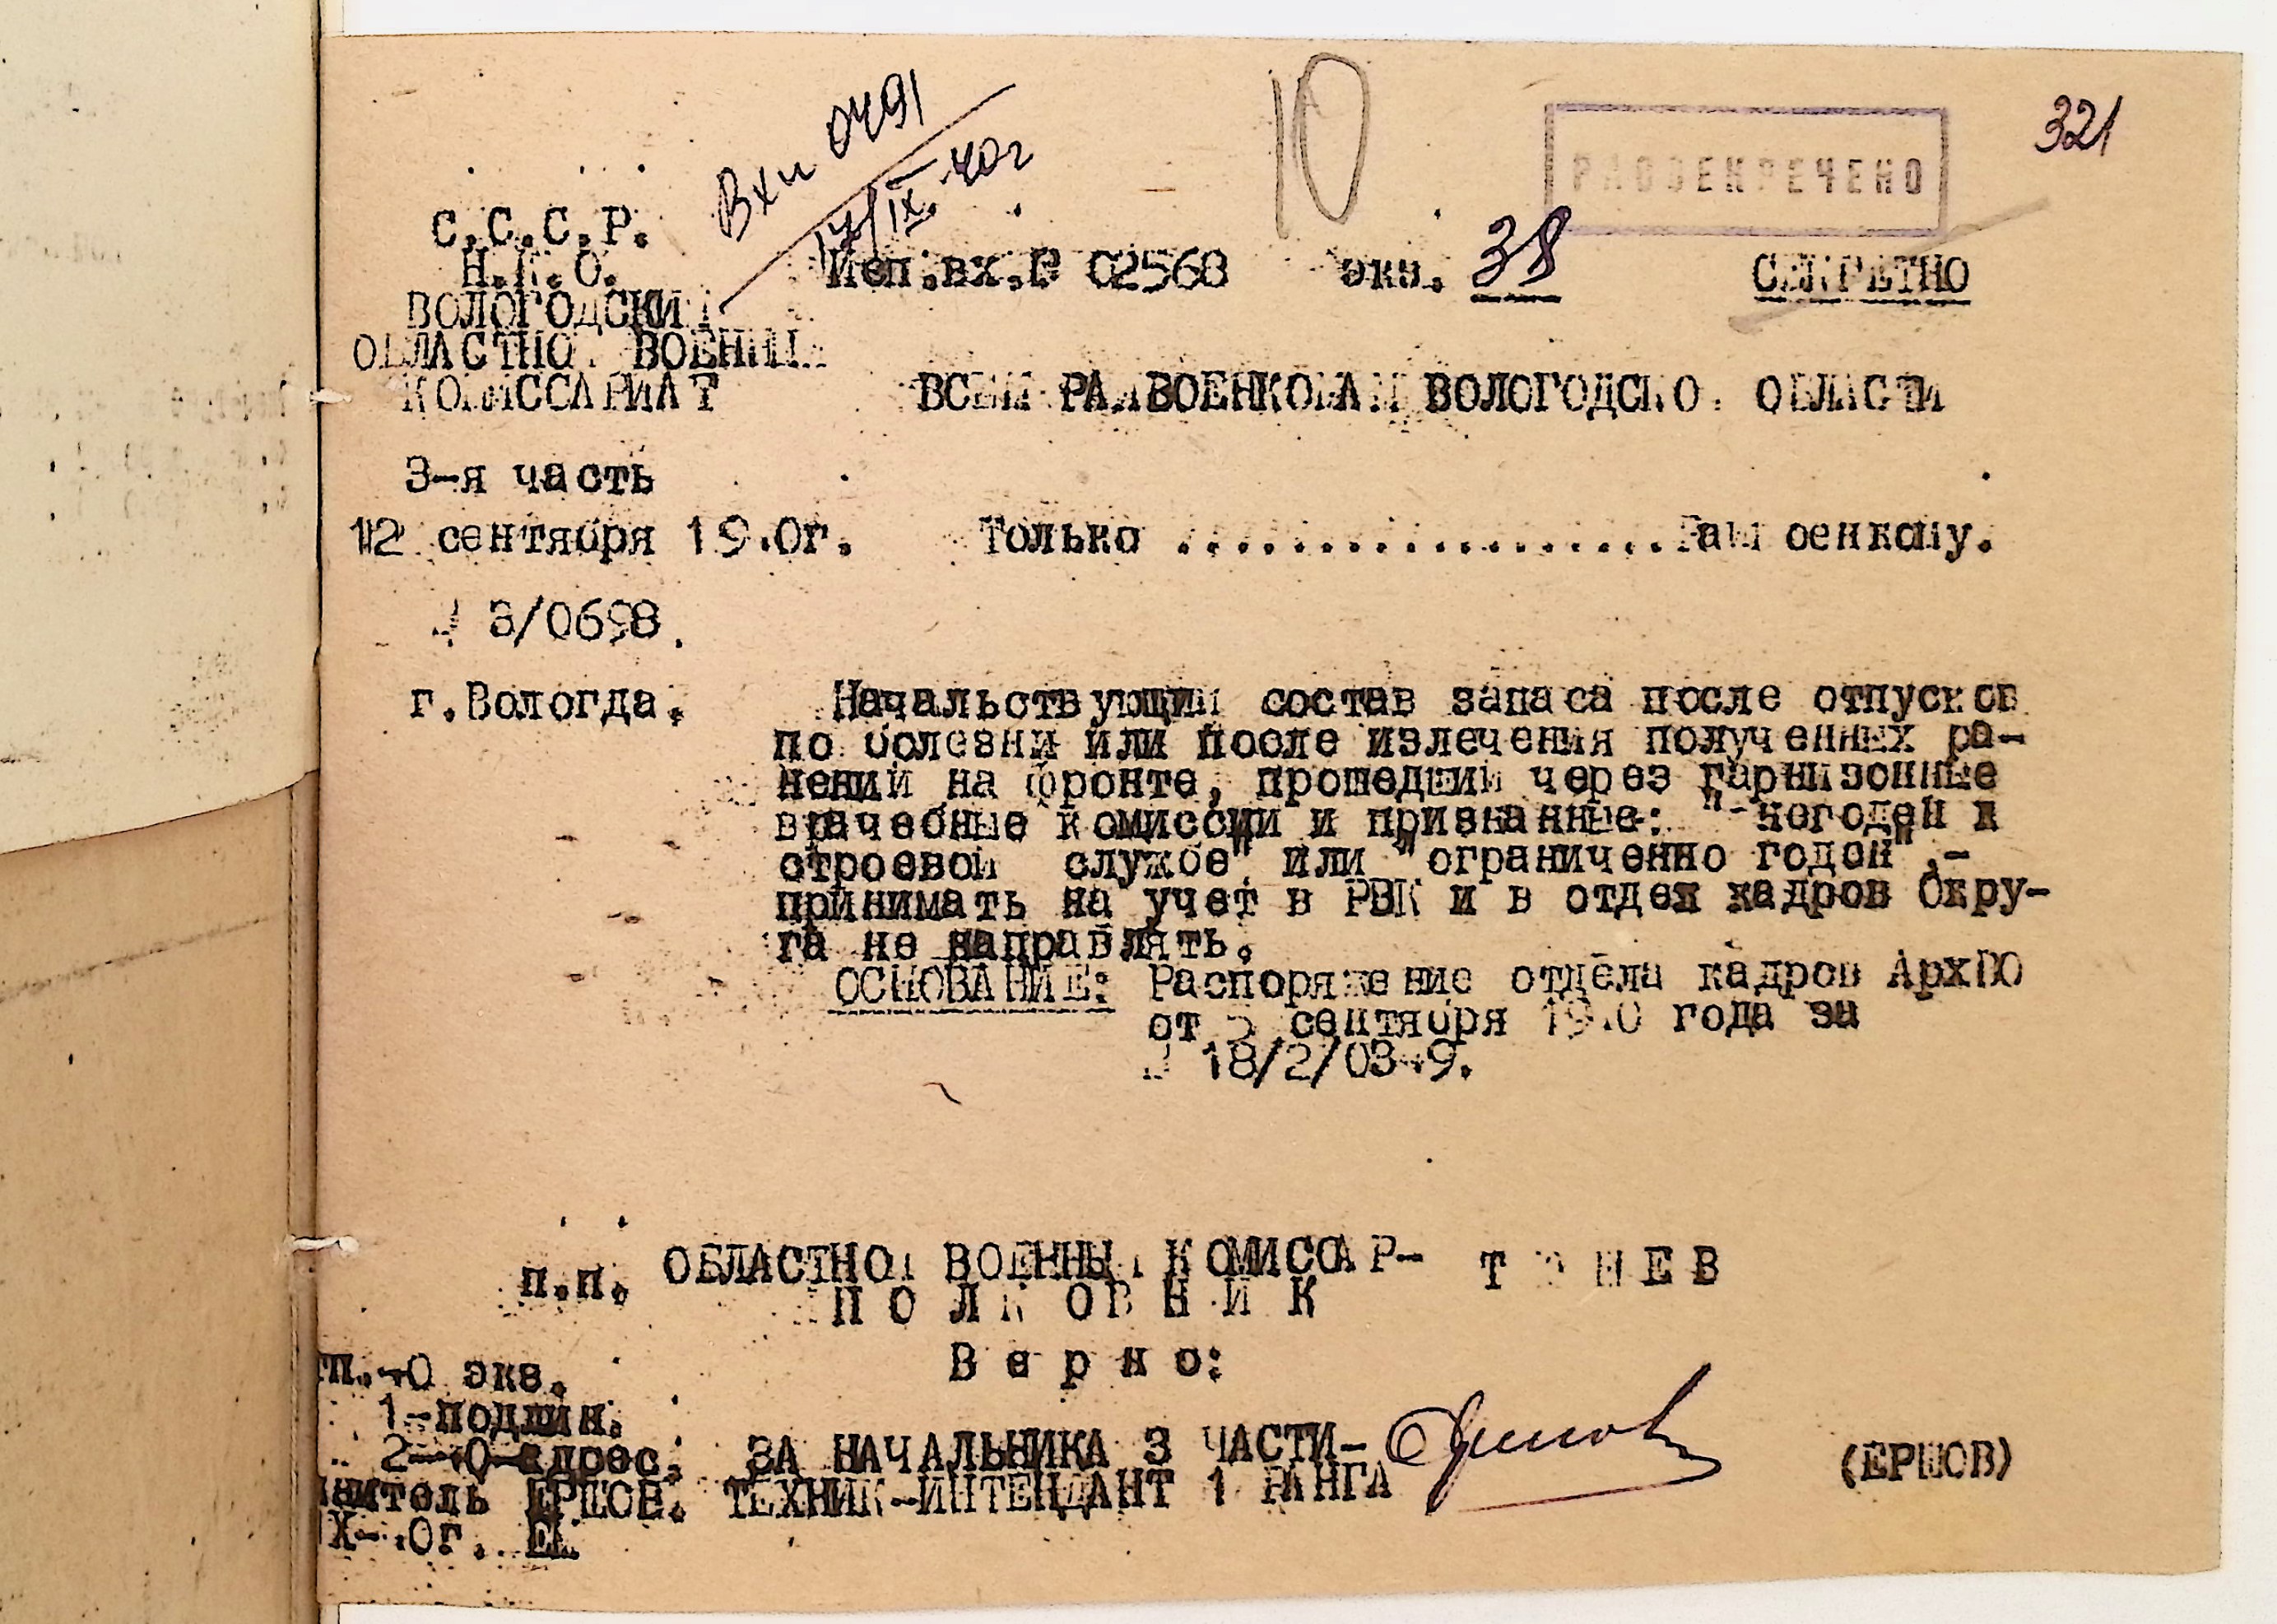 Вхи 0491
17/IX-40г
10
РАССЕКРЕЧЕНО
321
С.С.С.Р.
Н.К.О.
ВОЛОГОДСКИЙ
ОБЛАСТНОЙ ВОЕННЫЙ
КОМИССАРИАТ
Исп.вх.№ 02568 экз. 38
СЕКРЕТНО
ВСЕМ РАЙВОЕНКОМАМ ВОЛОГОДСКОЙ ОБЛАСТИ
3-я часть
12 сентября 1940г.
Только ................. Райвоенкому.
№ 3/0698.
г.Вологда.
Начальствующий состав запаса после отпусков
по болезни или после излечения полученных ра-
нений на фронте, прошедший через гарнизонные
врачебные комиссии и признанные: "-негоден к
строевой службе" или "ограниченно годен",-
принимать на учет в РВК и в отдел кадров Окру-
га не направлять.
ОСНОВАНИЕ: Распоряжение отдела кадров АрхВО
от 5 сентября 1940 года за
№ 18/2/0349.
п.п. ОБЛАСТНОЙ ВОЕННЫЙ КОМИССАР-
П О Л К О В Н И К
В е р н о:
тп.40 экз.
1-подлин.
2-40-адрес.
ЗА НАЧАЛЬНИКА 3 ЧАСТИ-
ТЕХНИК-ИНТЕНДАНТ 1 РАНГА
Ершов
(ЕРШОВ)
нитель ЕРШОВ.
IX-40г.